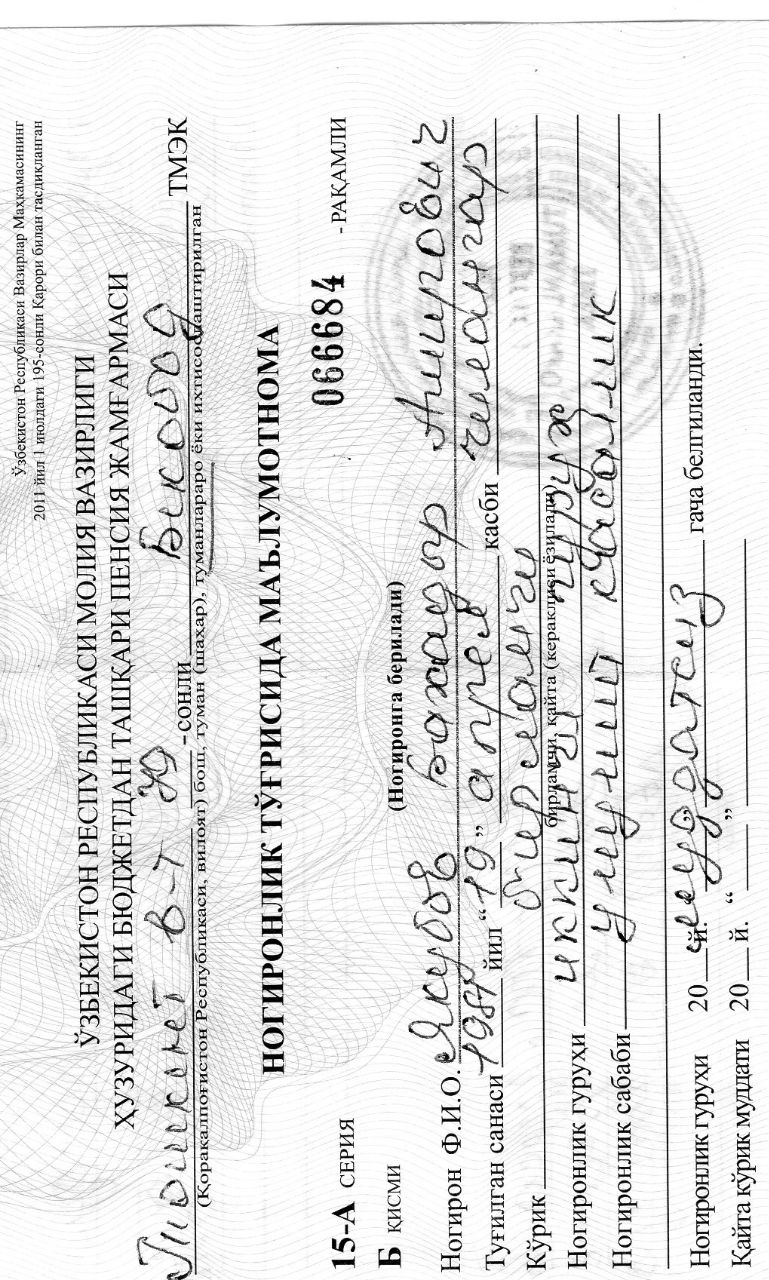 Ўзбекистон Республикаси Вазирлар Маҳкамасининг
2011 йил 1 июлдаги 195-сонли Қарори билан тасдиқланган
ЎЗБЕКИСТОН РЕСПУБЛИКАСИ МОЛИЯ ВАЗИРЛИГИ
ҲУЗУРИДАГИ БЮДЖЕТДАН ТАШҚАРИ ПЕНСИЯ ЖАМҒАРМАСИ
Тошкент в-т -сонли Бекобод ТМЭК
(Қорақалпоғистон Республикаси, вилоят) бош, туман (шаҳар), туманлараро ёки ихтисослаштирилган
НОГИРОНЛИК ТЎҒРИСИДА МАЪЛУМОТНОМА
15-А СЕРИЯ 066684 - РАҚАМЛИ
Б ҚИСМИ (Ногиронга берилади)
Ногирон Ф.И.О. Якубов Баходир Аширович
Туғилган санаси йил “19” апрел касби чилангар
Кўрик бирламчи
бирламчи, қайта (кераклиси ёзилади)
Ногиронлик гуруҳи иккинчи гуруҳ
Ногиронлик сабаби умумий касаллик
Ногиронлик гуруҳи 20 й. муддатсиз гача белгиланди.
Қайта кўрик муддати 20 й. “ ”